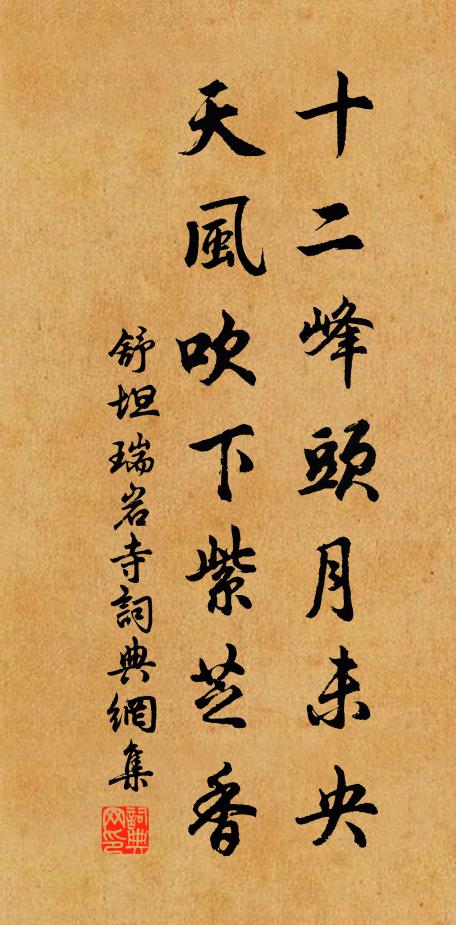 十二峰頭月未央
天風吹下紫芝香
舒坦瑞岩寺詞典網集
詞典网印